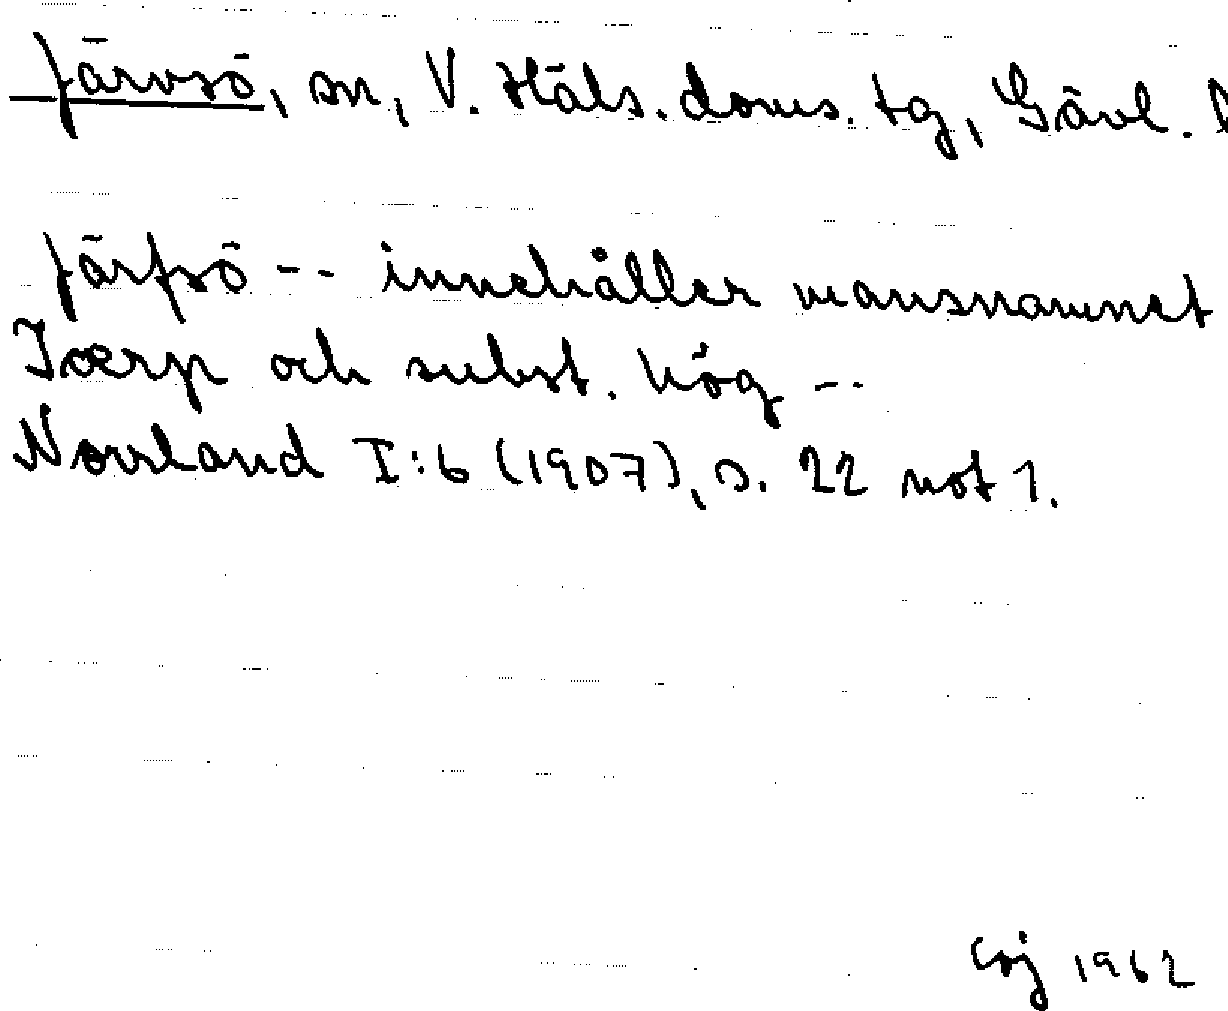 Järvsö, sn, V. Häls. doms. tg, Gävl. l
Järfsö -- innehåller mansnamnet
Iærp och subst. hög --
Norrland I:6 (1907), s. 22 not 1.
1962